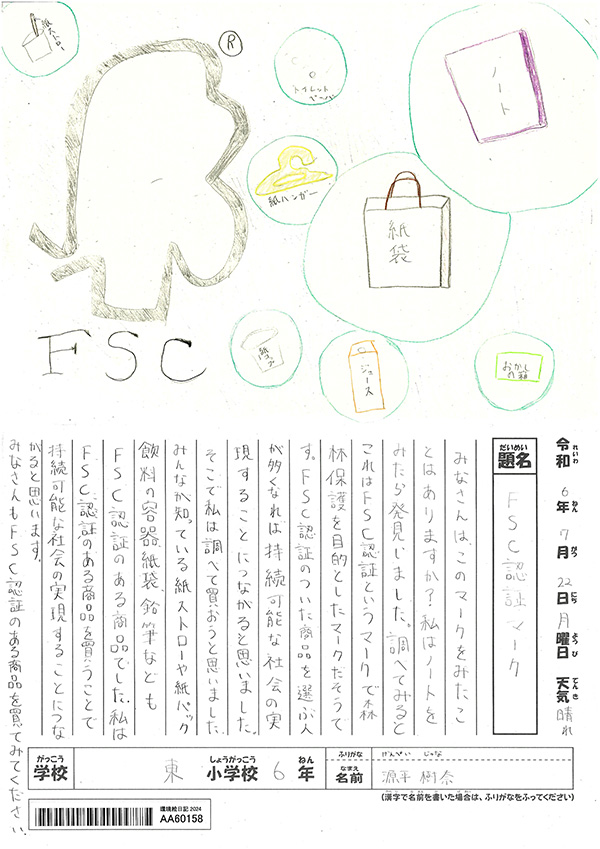 紙ストロー
®
トイレットペーパー
ノート
紙ハンガー
紙袋
FSC
紙コップ
ジュース
おかしの箱
令和6年7月22日月曜日 天気晴れ
れいわ ねん がつ にち ようび てんき
だいめい
題名 FSC認証マーク
みなさんは、このマークをみたこ
とはありますか?私はノートを
みたら発見しました。調べてみると
これはFSC認証というマークで森
林保護を目的としたマークだそうで
す。FSC認証のついた商品を選ぶ人
が多くなれば持続可能な社会の実
現することにつながると思いました。
そこで私は調べて買おうと思いました。
みんなが知っている紙ストローや紙パック
飲料の容器、紙袋、鉛筆なども
FSC認証のある商品でした。私は
FSC認証のある商品を買うことで
持続可能な社会の実現することにつな
がると思います。
みなさんもFSC認証のある商品を買ってみてください。
がっこう しょうがっこう ねん
学校 東 小学校 6年
ふりがな げんぺい じゅな
なまえ
名前 源平 樹奈
(漢字で名前を書いた場合は、ふりがなをふってください)
環境絵日記2024
AA60158